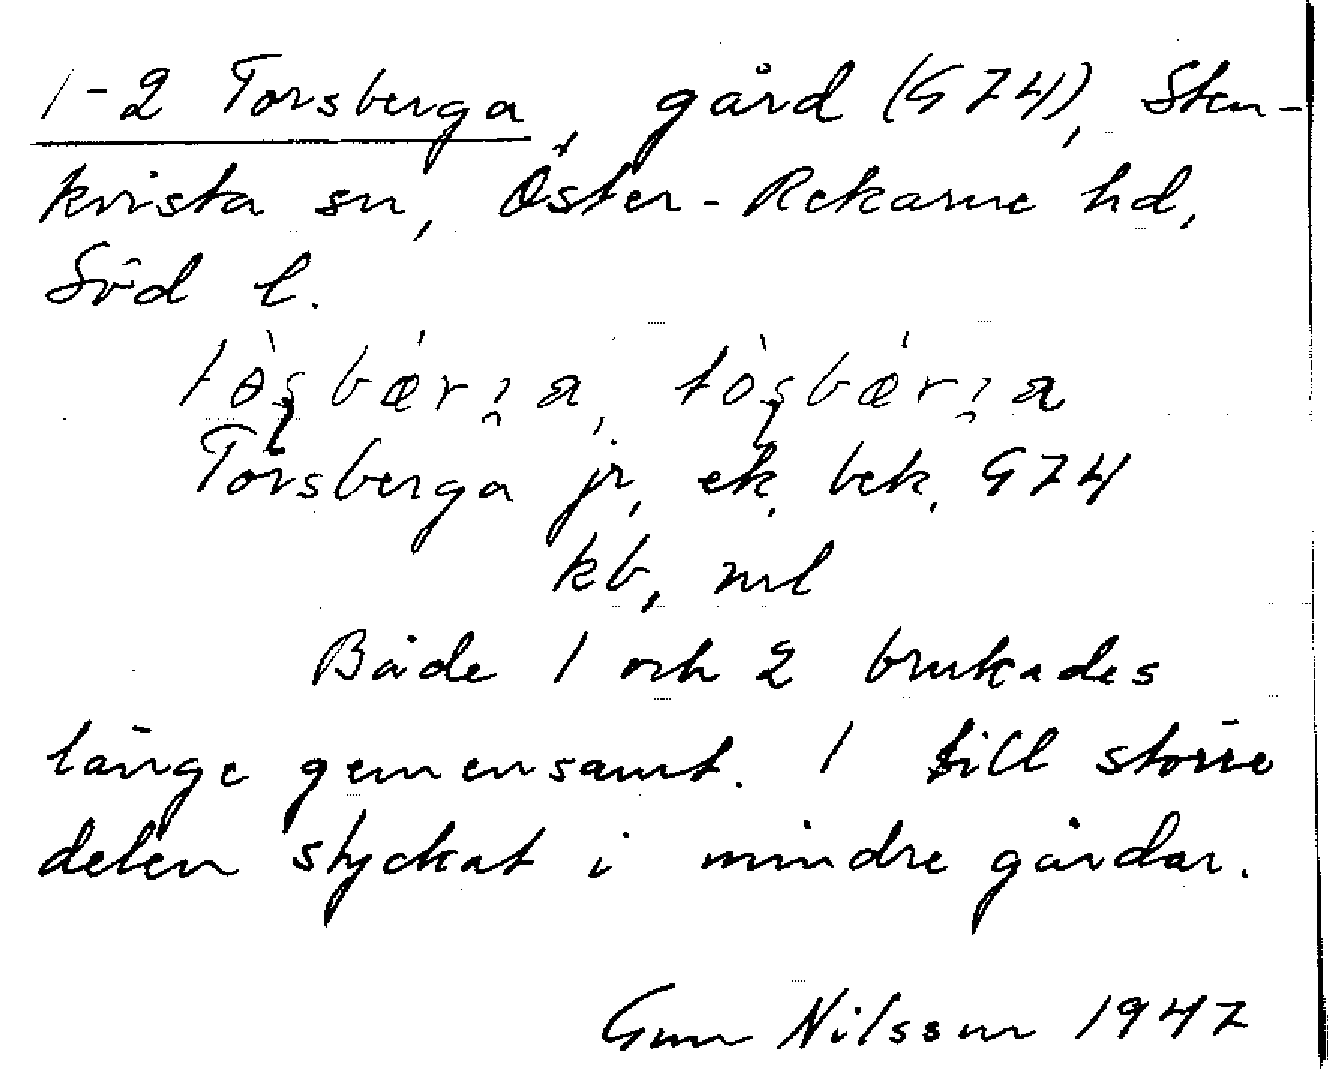 1-2 Torsberga, gård (G74), Sten-
kvista sn, Öster-Rekarne hd,
Söd l.
Torsberga jr, ek. bek. G74
kb, ml
Både 1 och 2 brukades
länge gemensamt. 1 till större
delen styckat i mindre gårdar.
Gun Nilsson 1947